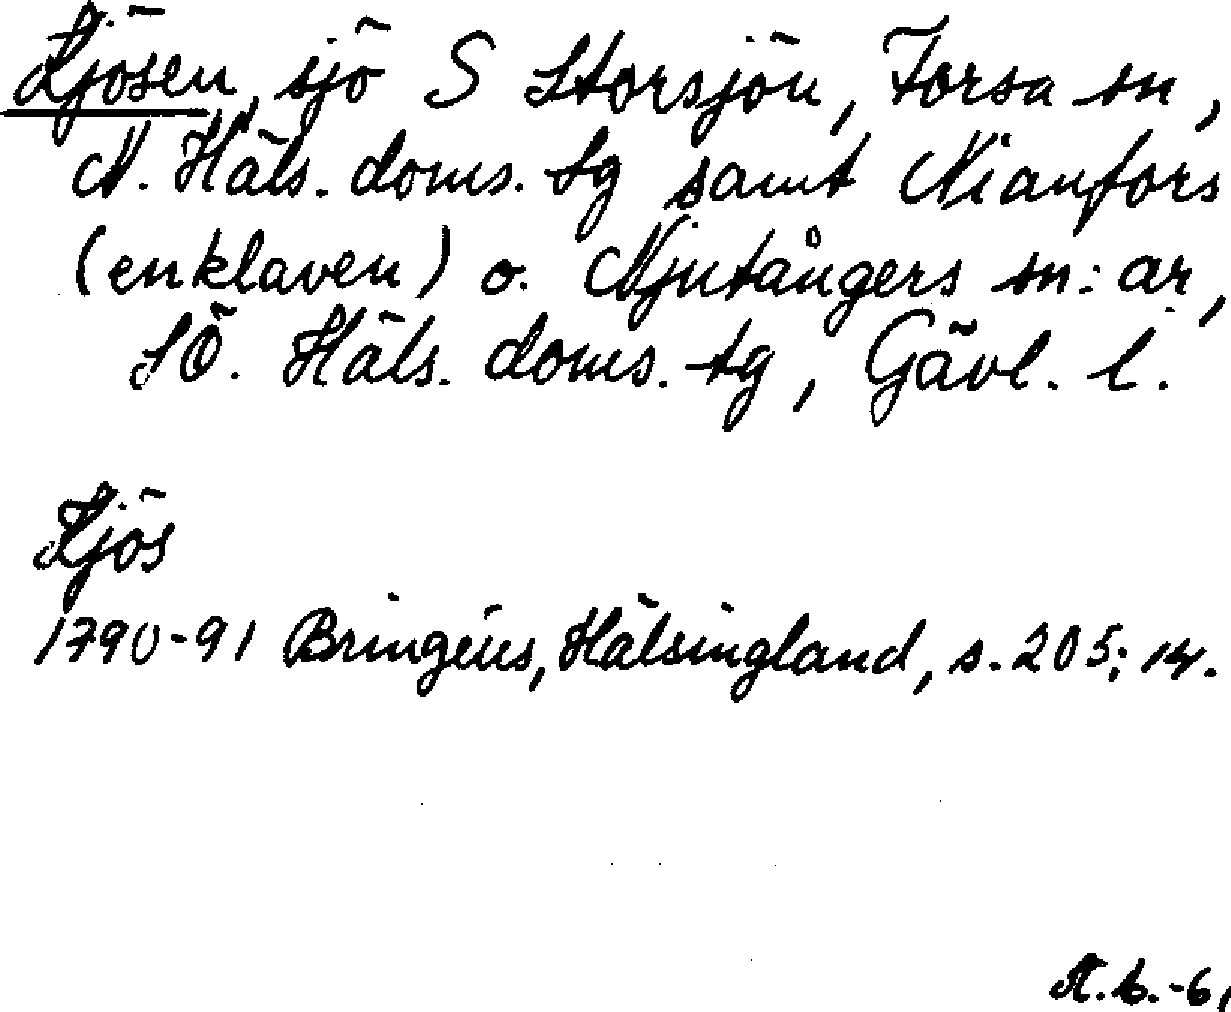 Kjösen, sjö S Storsjön, Forsa sn,
N. Häls. doms. tg samt Nianfors
(enklaven) o. Njutångers sn:ar,
SÖ. Häls. doms. tg, Gävl. l.
Kjös
1790-91 Bringéus, Hälsingland, s. 205; 14.
-61